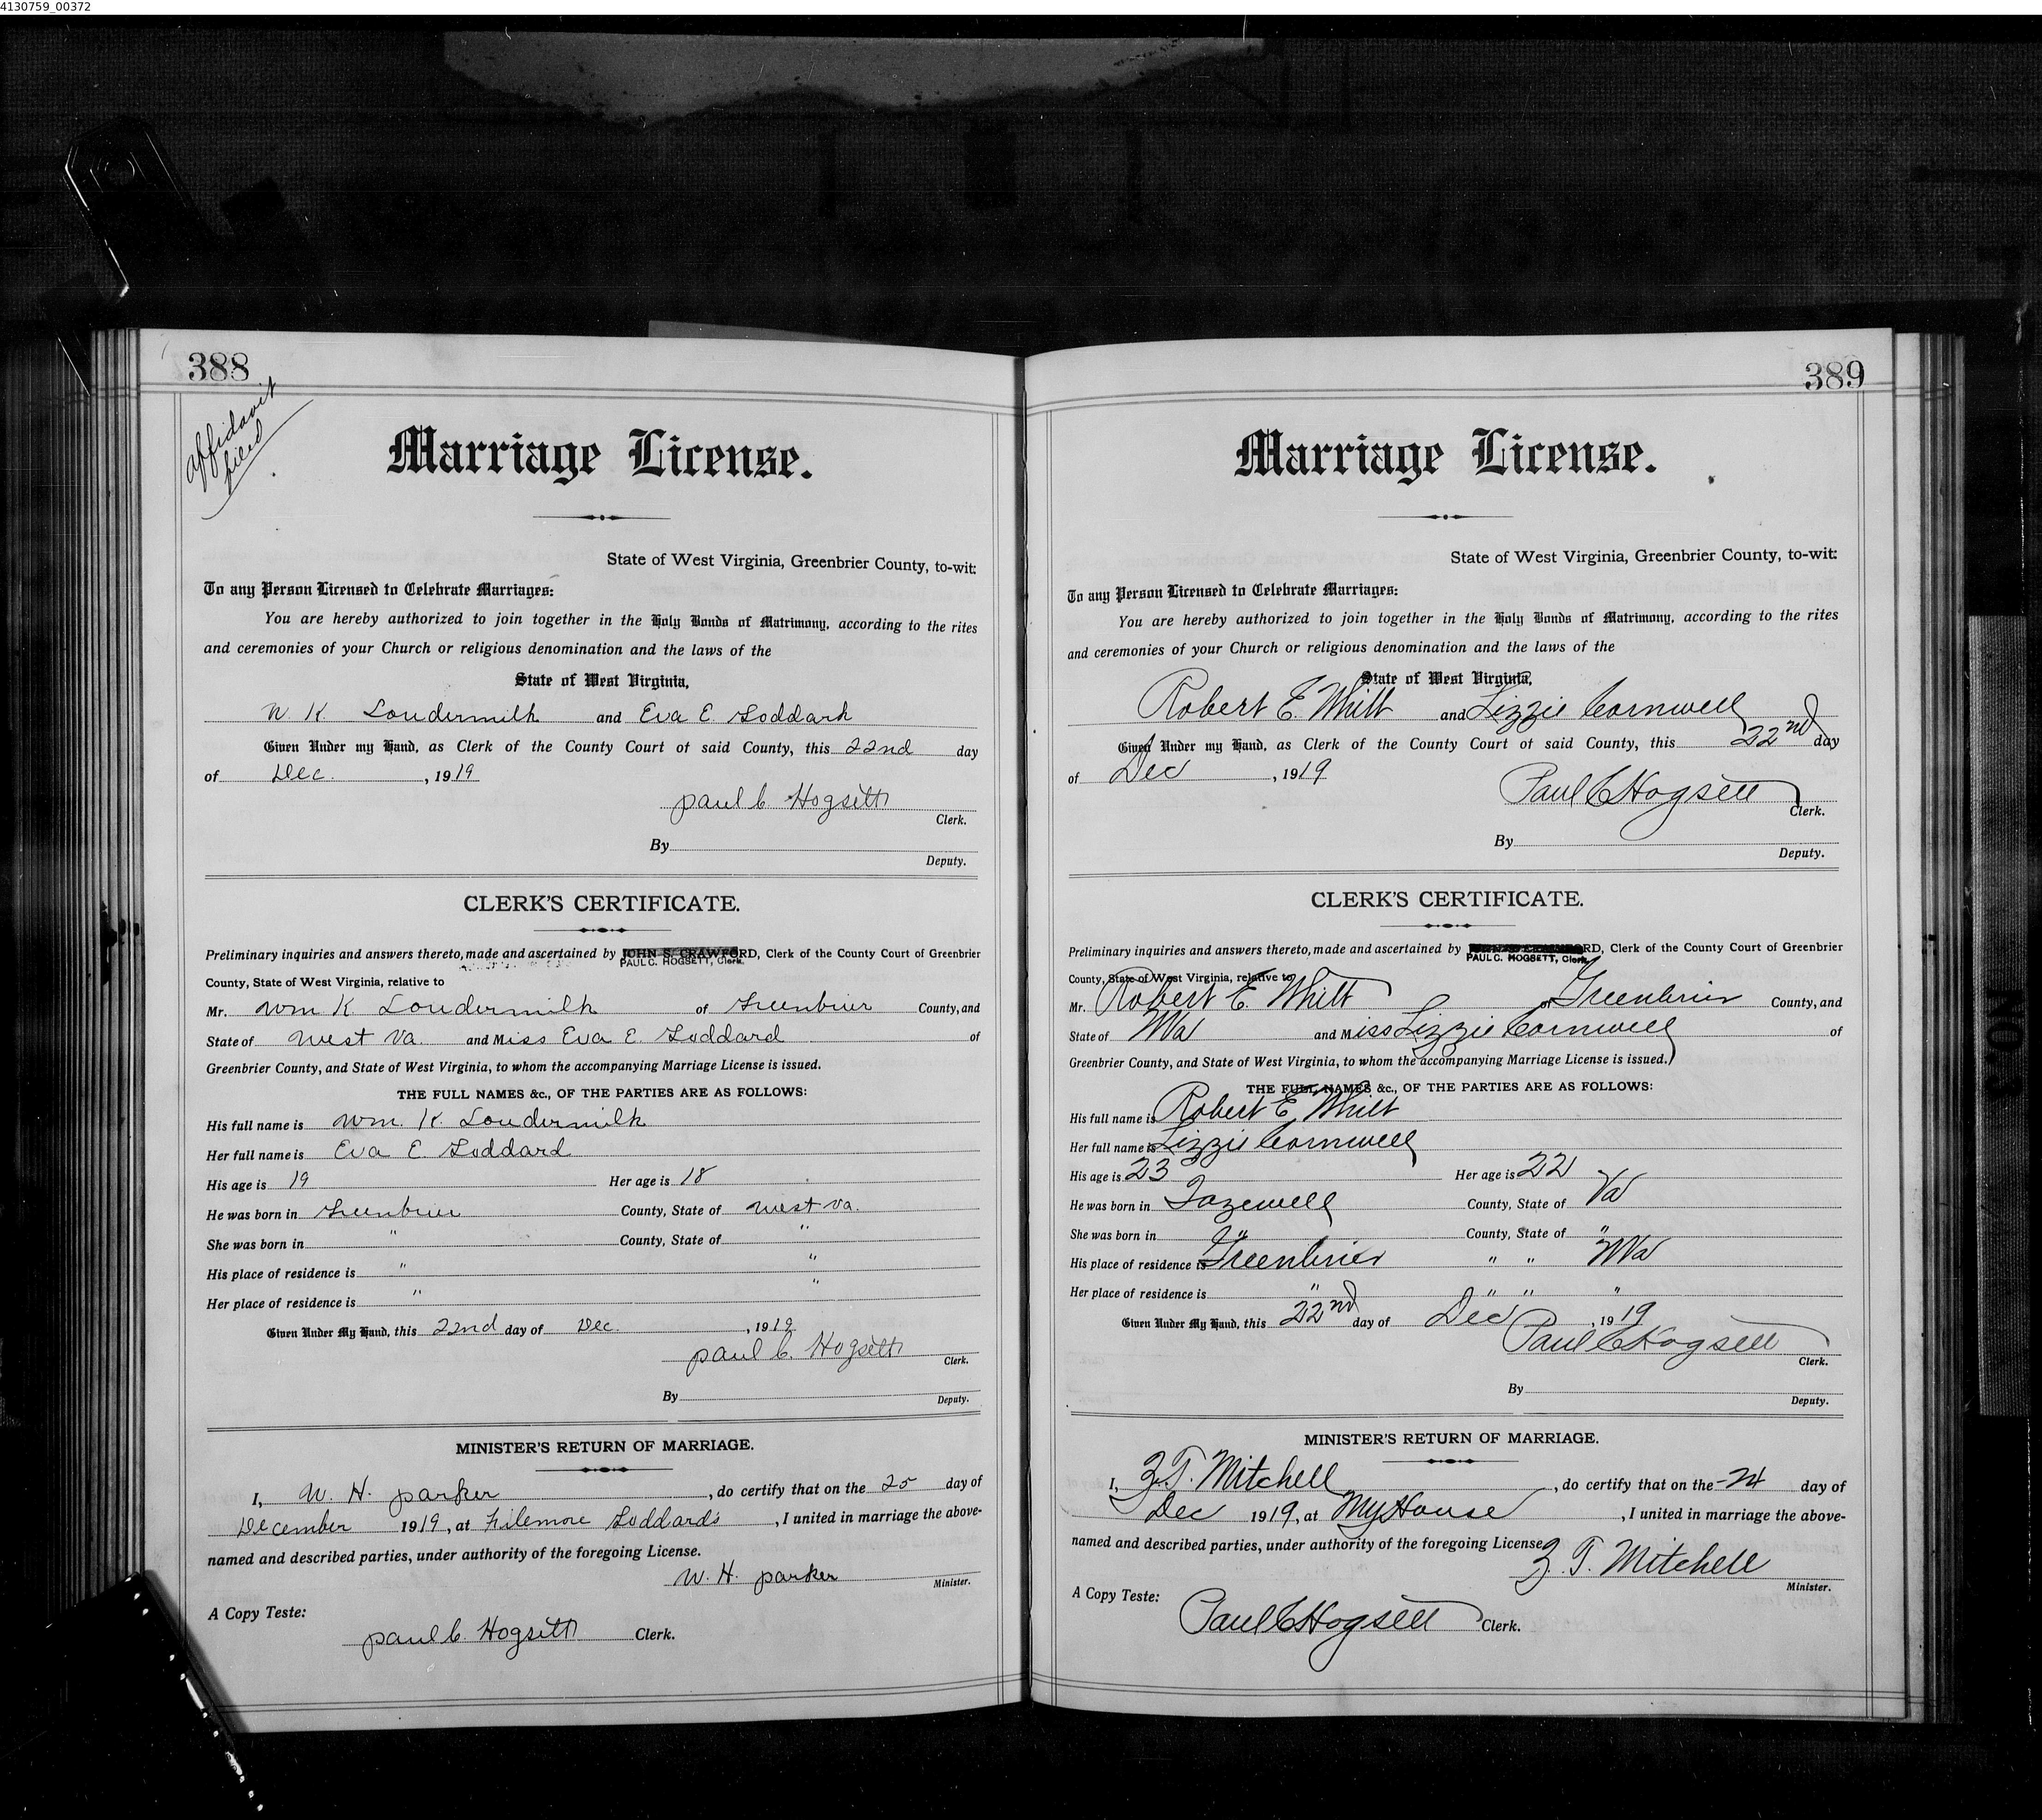 4130759_00372
388
affidavit
filed
Marriage License.
State of West Virginia, Greenbrier County, to-wit:
To any Person Licensed to Celebrate Marriages:
You are hereby authorized to join together in the Holy Bonds of Matrimony, according to the rites
and ceremonies of your Church or religious denomination and the laws of the
State of West Virginia,
W. K. Loudermilk and Eva E. Goddark
Given Under my Hand, as Clerk of the County Court of said County, this 22nd day
of Dec. , 1919
Paul C. Hogsett
Clerk.
By
Deputy.
CLERK'S CERTIFICATE.
Preliminary inquiries and answers thereto, made and ascertained by JOHN S. CRAWFORD, Clerk of the County Court of Greenbrier
PAUL C. HOGSETT, Clerk.
County, State of West Virginia, relative to
Mr. Wm K. Loudermilk of Greenbrier County, and
State of West Va. and Miss Eva E. Goddard of
Greenbrier County, and State of West Virginia, to whom the accompanying Marriage License is issued.
THE FULL NAMES &c., OF THE PARTIES ARE AS FOLLOWS:
His full name is Wm. K. Loudermilk
Her full name is Eva E. Goddard
His age is 19 Her age is 18
He was born in Greenbrier County, State of West Va.
She was born in " County, State of "
His place of residence is " "
Her place of residence is " "
Given Under My Hand, this 22nd day of Dec. , 1919
Paul C. Hogsett
Clerk.
By
Deputy.
MINISTER'S RETURN OF MARRIAGE.
I, W. H. Parker , do certify that on the 25 day of
December 1919, at Filemore Goddard's , I united in marriage the above-
named and described parties, under authority of the foregoing License.
W. H. Parker
Minister.
A Copy Teste:
Paul C. Hogsett Clerk.
389
Marriage License.
State of West Virginia, Greenbrier County, to-wit:
To any Person Licensed to Celebrate Marriages:
You are hereby authorized to join together in the Holy Bonds of Matrimony, according to the rites
and ceremonies of your Church or religious denomination and the laws of the
State of West Virginia,
Robert E. Whitt and Lizzie Cornwell
Given Under my Hand, as Clerk of the County Court of said County, this 22nd day
of Dec , 1919
Paul C Hogsett
Clerk.
By
Deputy.
CLERK'S CERTIFICATE.
Preliminary inquiries and answers thereto, made and ascertained by JOHN S. CRAWFORD, Clerk of the County Court of Greenbrier
PAUL C. HOGSETT, Clerk.
County, State of West Virginia, relative to
Mr. Robert E. Whitt of Greenbrier County, and
State of WVa and Miss Lizzie Cornwell of
Greenbrier County, and State of West Virginia, to whom the accompanying Marriage License is issued.
THE FULL NAMES &c., OF THE PARTIES ARE AS FOLLOWS:
His full name is Robert E. Whitt
Her full name is Lizzie Cornwell
His age is 23 Her age is 22
He was born in Tazewell County, State of Va
She was born in " County, State of "
His place of residence is Greenbrier " " WVa
Her place of residence is " " " "
Given Under My Hand, this 22nd day of Dec , 1919
Paul C Hogsett
Clerk.
By
Deputy.
MINISTER'S RETURN OF MARRIAGE.
I, Z. T. Mitchell , do certify that on the 24 day of
Dec 1919, at My House , I united in marriage the above-
named and described parties, under authority of the foregoing License.
Z. T. Mitchell
Minister.
A Copy Teste:
Paul C Hogsett Clerk.